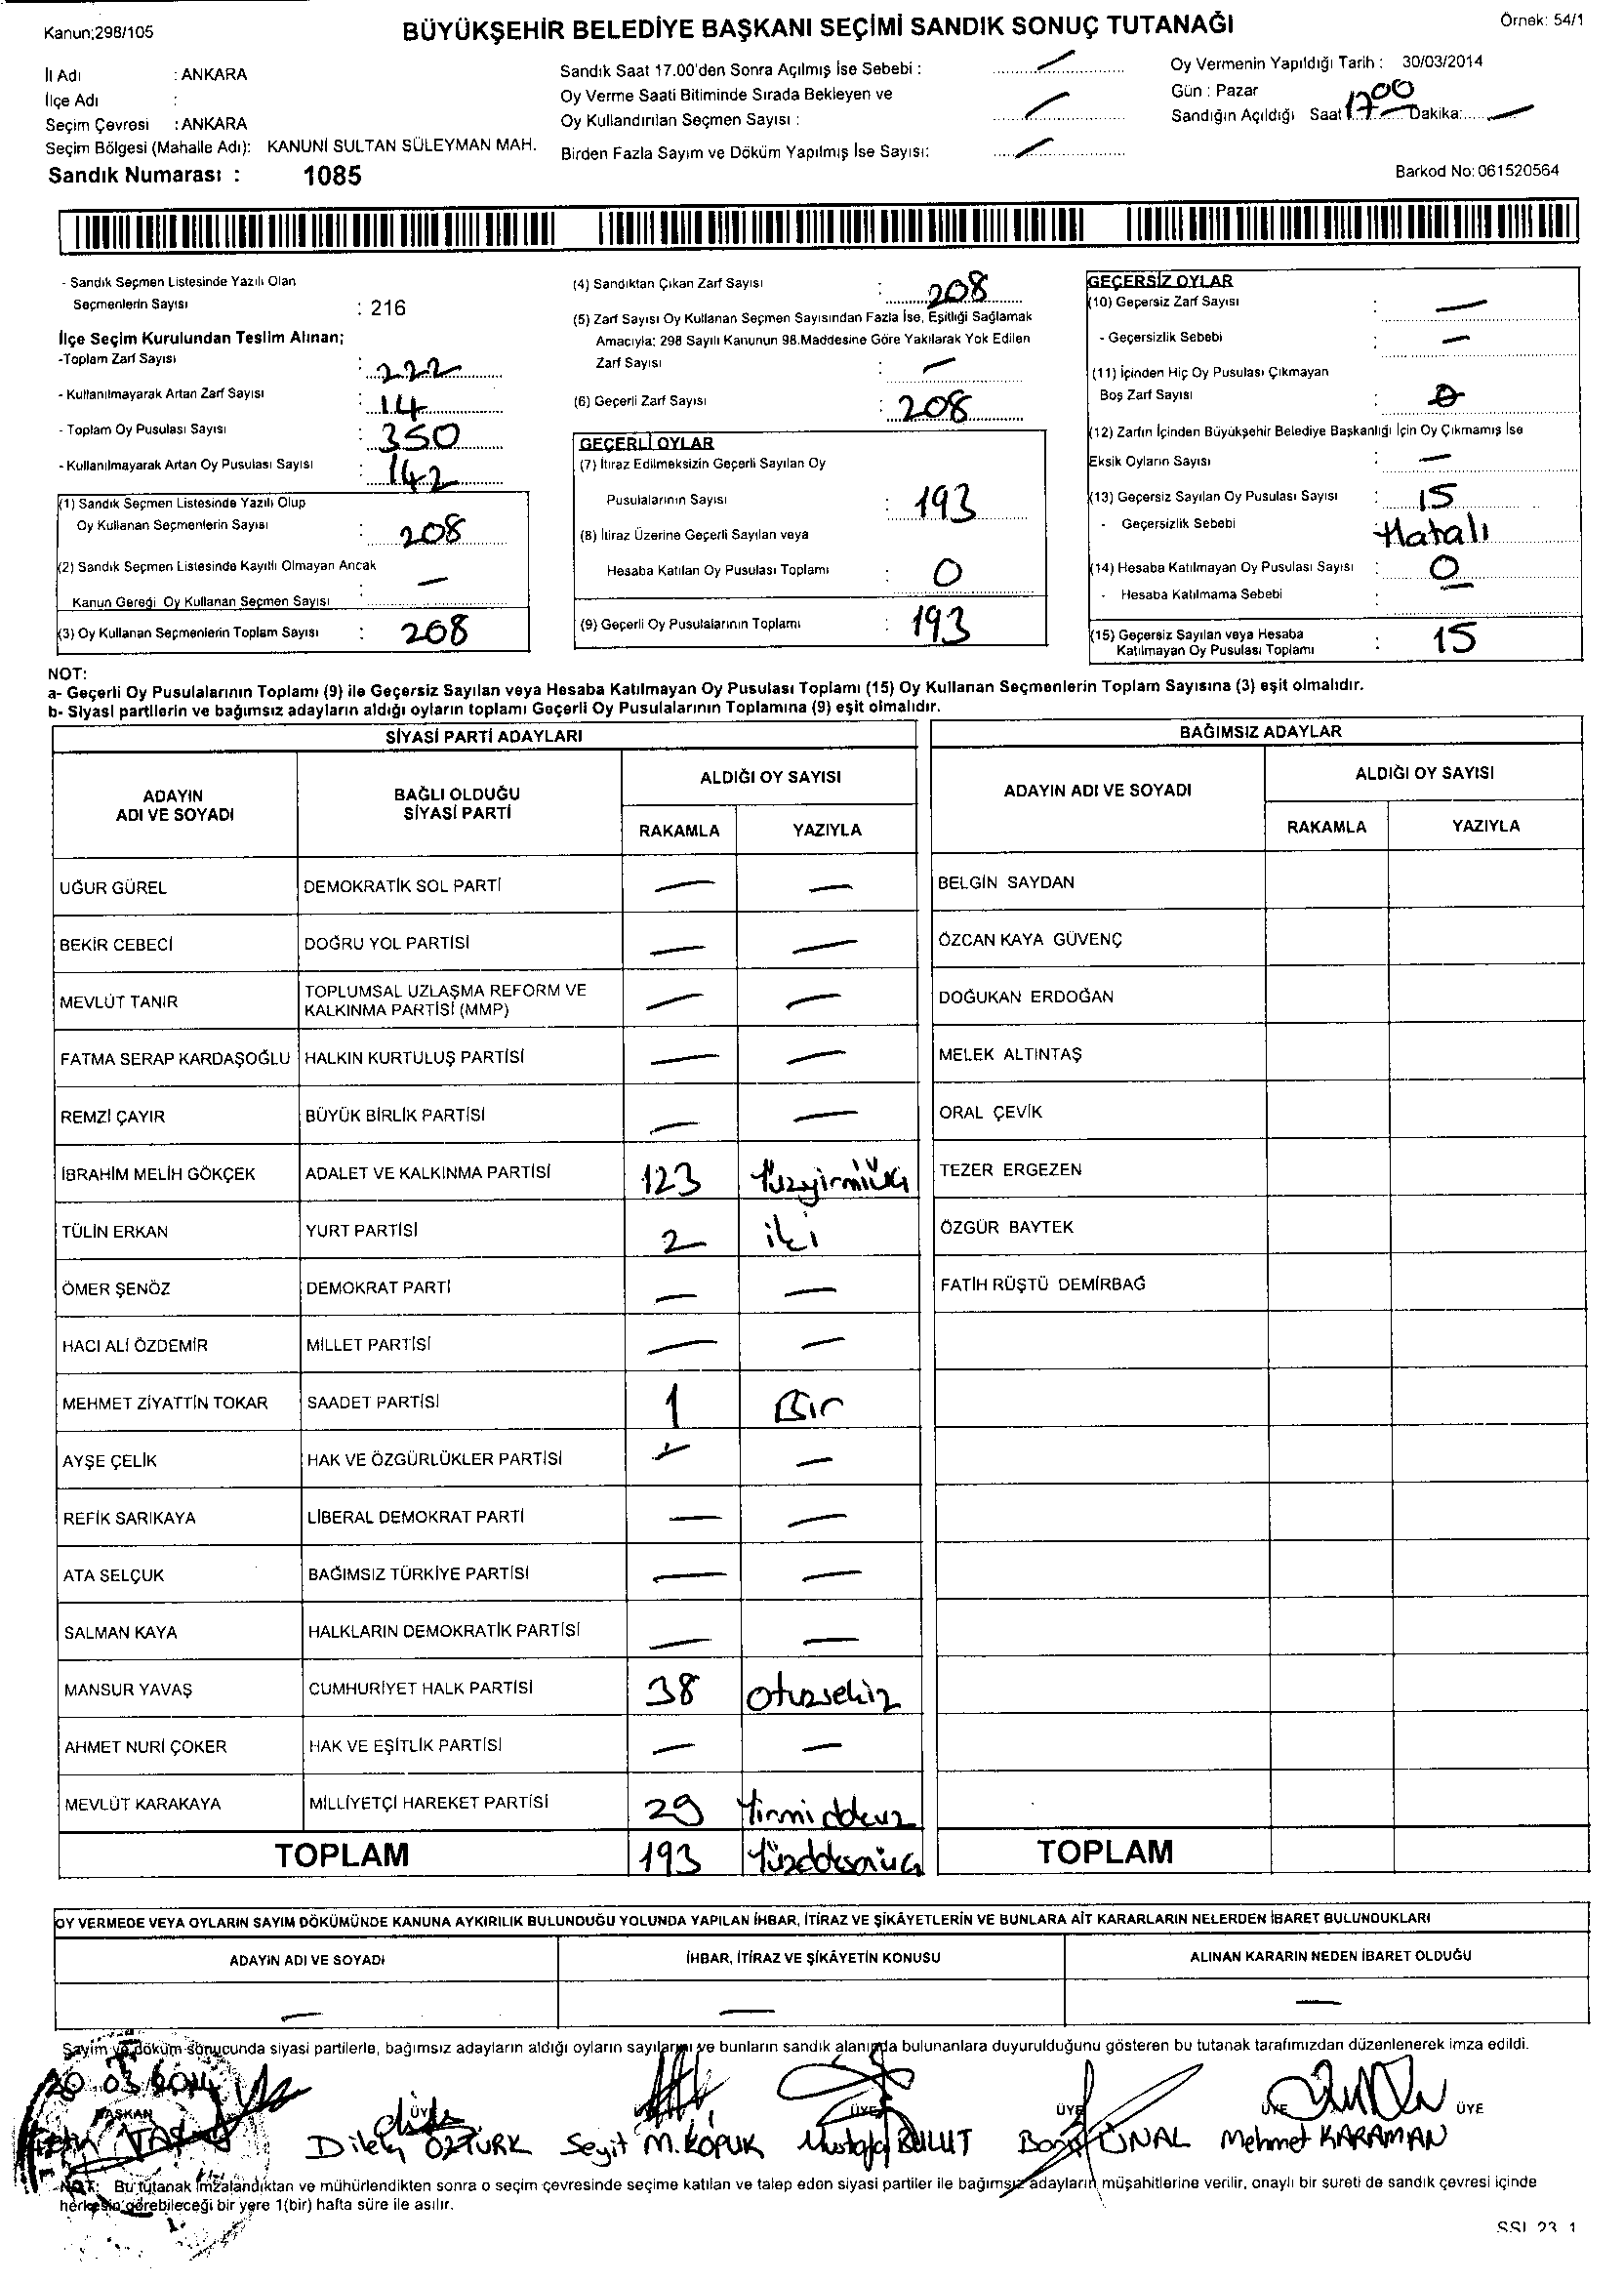 Kanun;298/105
BÜYÜKŞEHİR BELEDİYE BAŞKANI SEÇİMİ SANDIK SONUÇ TUTANAĞI
Örnek: 54/1
İl Adı : ANKARA
İlçe Adı :
Seçim Çevresi : ANKARA
Seçim Bölgesi (Mahalle Adı): KANUNİ SULTAN SÜLEYMAN MAH.
Sandık Numarası : 1085
Sandık Saat 17.00'den Sonra Açılmış İse Sebebi : —
Oy Verme Saati Bitiminde Sırada Bekleyen ve
Oy Kullandırılan Seçmen Sayısı : —
Birden Fazla Sayım ve Döküm Yapılmış İse Sayısı: —
Oy Vermenin Yapıldığı Tarih : 30/03/2014
Gün : Pazar
Sandığın Açıldığı Saat 17 00 Dakika: —
Barkod No: 061520564
- Sandık Seçmen Listesinde Yazılı Olan
Seçmenlerin Sayısı : 216
İlçe Seçim Kurulundan Teslim Alınan;
-Toplam Zarf Sayısı : 222
- Kullanılmayarak Artan Zarf Sayısı : 14
- Toplam Oy Pusulası Sayısı : 350
- Kullanılmayarak Artan Oy Pusulası Sayısı : 142
(1) Sandık Seçmen Listesinde Yazılı Olup
Oy Kullanan Seçmenlerin Sayısı : 208
(2) Sandık Seçmen Listesinde Kayıtlı Olmayan Ancak
Kanun Gereği Oy Kullanan Seçmen Sayısı : —
(3) Oy Kullanan Seçmenlerin Toplam Sayısı : 208
(4) Sandıktan Çıkan Zarf Sayısı : 208
(5) Zarf Sayısı Oy Kullanan Seçmen Sayısından Fazla İse, Eşitliği Sağlamak
Amacıyla; 298 Sayılı Kanunun 98.Maddesine Göre Yakılarak Yok Edilen
Zarf Sayısı : —
(6) Geçerli Zarf Sayısı : 208
GEÇERLİ OYLAR
(7) İtiraz Edilmeksizin Geçerli Sayılan Oy
Pusulalarının Sayısı : 193
(8) İtiraz Üzerine Geçerli Sayılan veya
Hesaba Katılan Oy Pusulası Toplamı : 0
(9) Geçerli Oy Pusulalarının Toplamı : 193
GEÇERSİZ OYLAR
(10) Geçersiz Zarf Sayısı : —
- Geçersizlik Sebebi —
(11) İçinden Hiç Oy Pusulası Çıkmayan
Boş Zarf Sayısı : 0
(12) Zarfın İçinden Büyükşehir Belediye Başkanlığı İçin Oy Çıkmamış İse
Eksik Oyların Sayısı : —
(13) Geçersiz Sayılan Oy Pusulası Sayısı : 15
- Geçersizlik Sebebi Hatalı
(14) Hesaba Katılmayan Oy Pusulası Sayısı : 0
- Hesaba Katılmama Sebebi : —
(15) Geçersiz Sayılan veya Hesaba
Katılmayan Oy Pusulası Toplamı : 15
NOT:
a- Geçerli Oy Pusulalarının Toplamı (9) ile Geçersiz Sayılan veya Hesaba Katılmayan Oy Pusulası Toplamı (15) Oy Kullanan Seçmenlerin Toplam Sayısına (3) eşit olmalıdır.
b- Siyasi partilerin ve bağımsız adayların aldığı oyların toplamı Geçerli Oy Pusulalarının Toplamına (9) eşit olmalıdır.
SİYASİ PARTİ ADAYLARI
ADAYIN ADI VE SOYADI
BAĞLI OLDUĞU SİYASİ PARTİ
ALDIĞI OY SAYISI
RAKAMLA YAZIYLA
UĞUR GÜREL DEMOKRATİK SOL PARTİ — —
BEKİR CEBECİ DOĞRU YOL PARTİSİ — —
MEVLÜT TANIR TOPLUMSAL UZLAŞMA REFORM VE KALKINMA PARTİSİ (MMP) — —
FATMA SERAP KARDAŞOĞLU HALKIN KURTULUŞ PARTİSİ — —
REMZİ ÇAYIR BÜYÜK BİRLİK PARTİSİ — —
İBRAHİM MELİH GÖKÇEK ADALET VE KALKINMA PARTİSİ 123 Yüzyirmiüç
TÜLİN ERKAN YURT PARTİSİ 2 iki
ÖMER ŞENÖZ DEMOKRAT PARTİ — —
HACI ALİ ÖZDEMİR MİLLET PARTİSİ — —
MEHMET ZİYATTİN TOKAR SAADET PARTİSİ 1 Bir
AYŞE ÇELİK HAK VE ÖZGÜRLÜKLER PARTİSİ — —
REFİK SARIKAYA LİBERAL DEMOKRAT PARTİ — —
ATA SELÇUK BAĞIMSIZ TÜRKİYE PARTİSİ — —
SALMAN KAYA HALKLARIN DEMOKRATİK PARTİSİ — —
MANSUR YAVAŞ CUMHURİYET HALK PARTİSİ 38 otuzsekiz
AHMET NURİ ÇOKER HAK VE EŞİTLİK PARTİSİ — —
MEVLÜT KARAKAYA MİLLİYETÇİ HAREKET PARTİSİ 29 Yirmidokuz
TOPLAM 193 Yüzdoksanüç
BAĞIMSIZ ADAYLAR
ADAYIN ADI VE SOYADI
ALDIĞI OY SAYISI
RAKAMLA YAZIYLA
BELGİN SAYDAN
ÖZCAN KAYA GÜVENÇ
DOĞUKAN ERDOĞAN
MELEK ALTINTAŞ
ORAL ÇEVİK
TEZER ERGEZEN
ÖZGÜR BAYTEK
FATİH RÜŞTÜ DEMİRBAĞ
TOPLAM
OY VERMEDE VEYA OYLARIN SAYIM DÖKÜMÜNDE KANUNA AYKIRILIK BULUNDUĞU YOLUNDA YAPILAN İHBAR, İTİRAZ VE ŞİKÂYETLERİN VE BUNLARA AİT KARARLARIN NELERDEN İBARET BULUNDUKLARI
ADAYIN ADI VE SOYADI İHBAR, İTİRAZ VE ŞİKÂYETİN KONUSU ALINAN KARARIN NEDEN İBARET OLDUĞU
— — —
Sayım ve döküm sonucunda siyasi partilerle, bağımsız adayların aldığı oyların sayılarını ve bunların sandık alanında bulunanlara duyurulduğunu gösteren bu tutanak tarafımızdan düzenlenerek imza edildi.
03 2014
BAŞKAN ÜYE ÜYE ÜYE ÜYE ÜYE
TAŞ Dilek ÖZTÜRK Seyit M. KÖPÜK Mustafa BULUT Barış ÜNAL Mehmet KARAMAN
NOT: Bu tutanak imzalandıktan ve mühürlendikten sonra o seçim çevresinde seçime katılan ve talep eden siyasi partiler ile bağımsız adayların müşahitlerine verilir, onaylı bir sureti de sandık çevresi içinde
herkesin görebileceği bir yere 1(bir) hafta süre ile asılır.